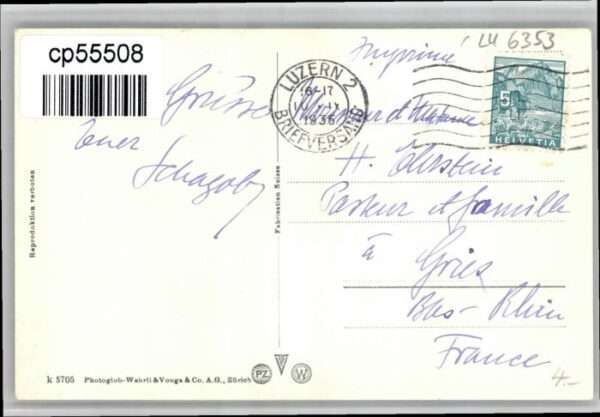 cp55508
LU 6353
Imprimé
LUZERN 2
1935
BRIEFVERSAND
5
HELVETIA
Grüsse
Euer
et Madame
H.
Pasteur et famille
à
Gries
Bas-Rhin
France
4.-
Reproduktion verboten
Fabrication Suisse
k 5705 Photoglob-Wehrli & Vouga & Co. A.G., Zürich
PZ
W